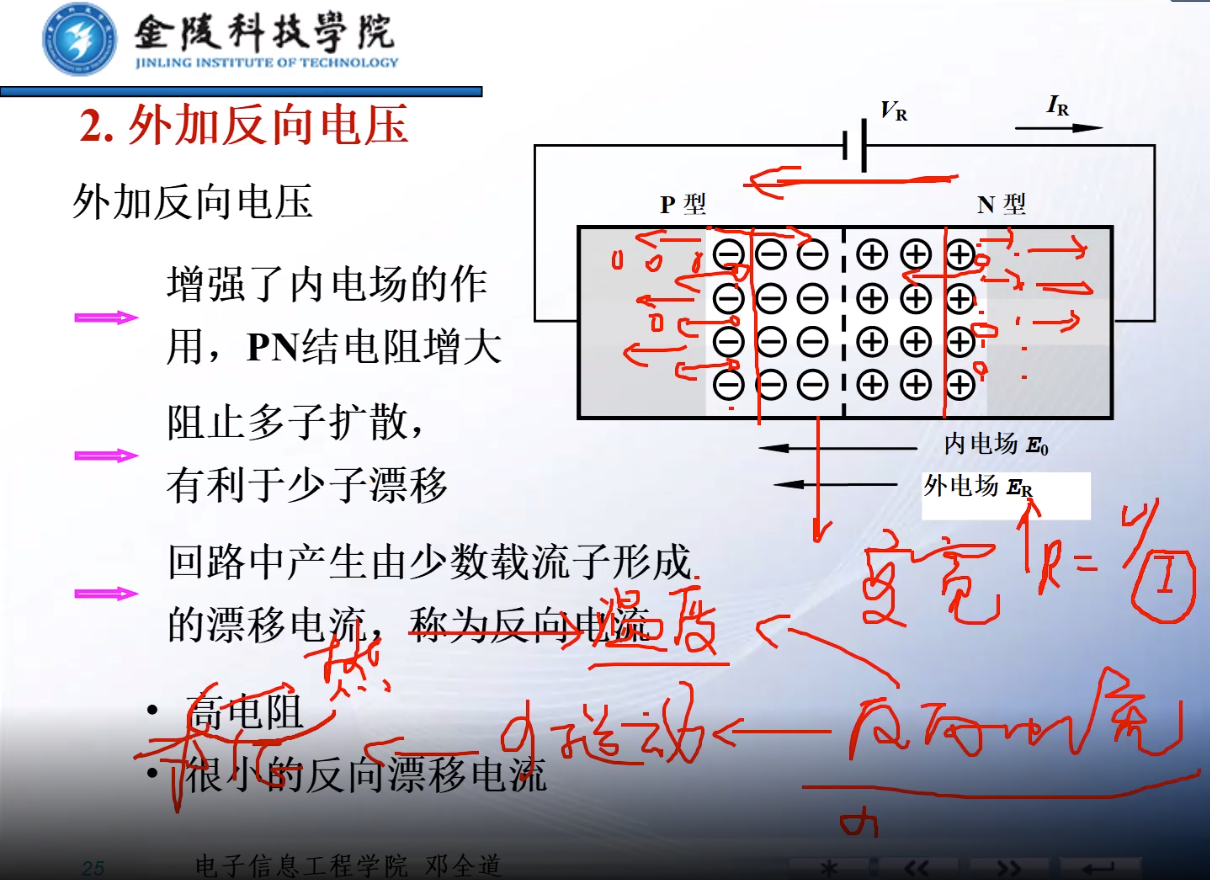 金陵科技學院
JINLING INSTITUTE OF TECHNOLOGY
2. 外加反向电压
外加反向电压
增强了内电场的作
用，PN结电阻增大
阻止多子扩散，
有利于少子漂移
回路中产生由少数载流子形成
的漂移电流，称为反向电流
• 高电阻
• 很小的反向漂移电流
VR
IR
P 型
N 型
内电场 E0
外电场 ER
变宽
R = U/I
温度
热
运动
反向电流
25
电子信息工程学院 邓全道